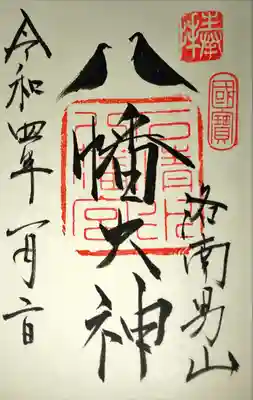 奉拝
國寶
洛南男山
八幡大神
石清水
八幡宮
令和四年 月 日